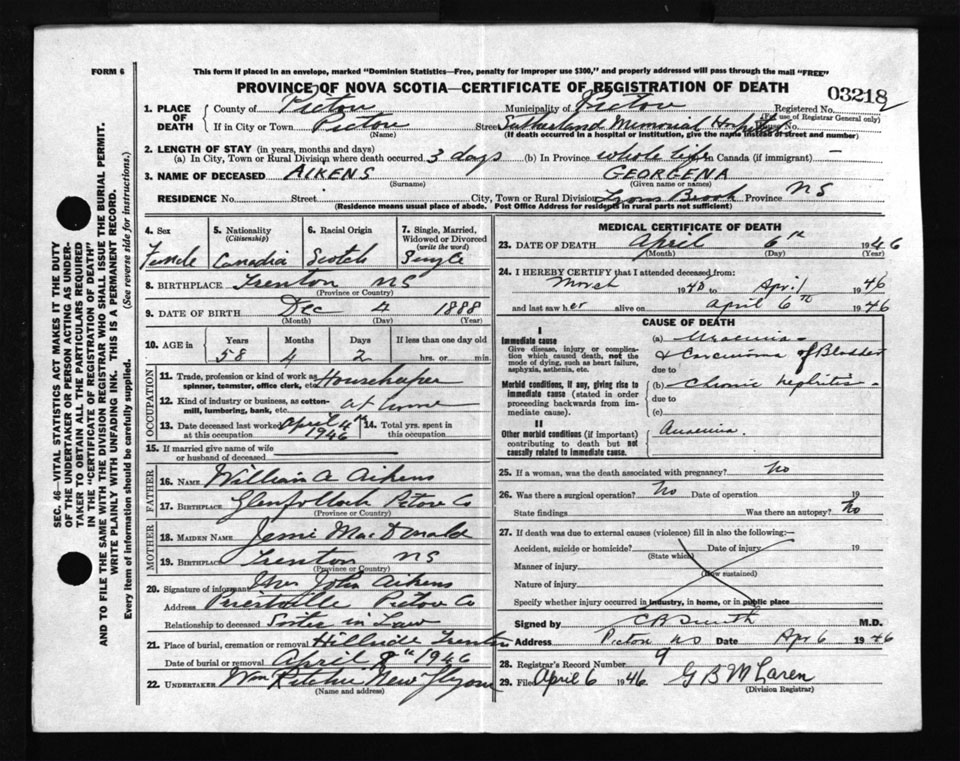 FORM 6
This form if placed in an envelope, marked "Dominion Statistics—Free, penalty for improper use $300," and properly addressed will pass through the mail "FREE"
PROVINCE OF NOVA SCOTIA—CERTIFICATE OF REGISTRATION OF DEATH
03218
1. PLACE OF DEATH { County of Pictou Municipality of Pictou Registered No.
(For use of Registrar General only)
If in City or Town Pictou Street Sutherland Memorial Hospital No.
(Name) (If death occurred in a hospital or institution, give the name instead of street and number)
2. LENGTH OF STAY (in years, months and days)
(a) In City, Town or Rural Division where death occurred 3 days (b) In Province whole life In Canada (if immigrant) —
3. NAME OF DECEASED AIKENS GEORGENA
(Surname) (Given name or names)
RESIDENCE No. Street City, Town or Rural Division Lyons Brook Province NS
(Residence means usual place of abode. Post Office Address for residents in rural parts not sufficient)
4. Sex Female
5. Nationality (Citizenship) Canadia
6. Racial Origin Scotch
7. Single, Married, Widowed or Divorced (write the word) Single
8. BIRTHPLACE Trenton NS
(Province or Country)
9. DATE OF BIRTH Dec 4 1888
(Month) (Day) (Year)
10. AGE in Years Months Days If less than one day old
58 4 2 hrs. or min.
OCCUPATION
11. Trade, profession or kind of work as spinner, teamster, office clerk, etc. Housekeeper
12. Kind of industry or business, as cotton-mill, lumbering, bank, etc. at home
13. Date deceased last worked at this occupation April 4th 1946
14. Total yrs. spent in this occupation
15. If married give name of wife or husband of deceased
FATHER
16. NAME William A. Aikens
17. BIRTHPLACE Pictou Co
(Province or Country)
MOTHER
18. MAIDEN NAME Jessie MacDonald
19. BIRTHPLACE Trenton NS
(Province or Country)
20. Signature of informant Mrs John Aikens
Address Priestville Pictou Co
Relationship to deceased Sister in Law
21. Place of burial, cremation or removal Hillside Trenton
Date of burial or removal April 8th 1946
22. UNDERTAKER Wm Ritchie New Glasgow
(Name and address)
MEDICAL CERTIFICATE OF DEATH
23. DATE OF DEATH April 6th 1946
(Month) (Day) (Year)
24. I HEREBY CERTIFY that I attended deceased from:
March 1940 to April 1946
and last saw her alive on April 6th 1946
CAUSE OF DEATH
I
Immediate cause
Give disease, injury or complication which caused death, not the mode of dying, such as heart failure, asphyxia, asthenia, etc.
(a) Uraemia
& Carcinoma of Bladder
due to
Morbid conditions, if any, giving rise to immediate cause (stated in order proceeding backwards from immediate cause).
(b) Chronic nephritis
due to
(c)
II
Other morbid conditions (if important) contributing to death but not causally related to immediate cause.
Anaemia.
25. If a woman, was the death associated with pregnancy? no
26. Was there a surgical operation? no Date of operation 19
State findings Was there an autopsy? no
27. If death was due to external causes (violence) fill in also the following:—
Accident, suicide or homicide? Date of injury 19
(State which)
Manner of injury
(How sustained)
Nature of injury
Specify whether injury occurred in industry, in home, or in public place
Signed by C B Smith M.D.
Address Pictou NS Date Apr 6 1946
28. Registrar's Record Number 9
29. Filed April 6 1946 G B McLaren
(Division Registrar)
SEC. 46—VITAL STATISTICS ACT MAKES IT THE DUTY
OF THE UNDERTAKER OR PERSON ACTING AS UNDER-
TAKER TO OBTAIN ALL THE PARTICULARS REQUIRED
IN THE "CERTIFICATE OF REGISTRATION OF DEATH"
AND TO FILE THE SAME WITH THE DIVISION REGISTRAR WHO SHALL ISSUE THE BURIAL PERMIT.
WRITE PLAINLY WITH UNFADING INK. THIS IS A PERMANENT RECORD.
Every item of information should be carefully supplied. (See reverse side for instructions.)